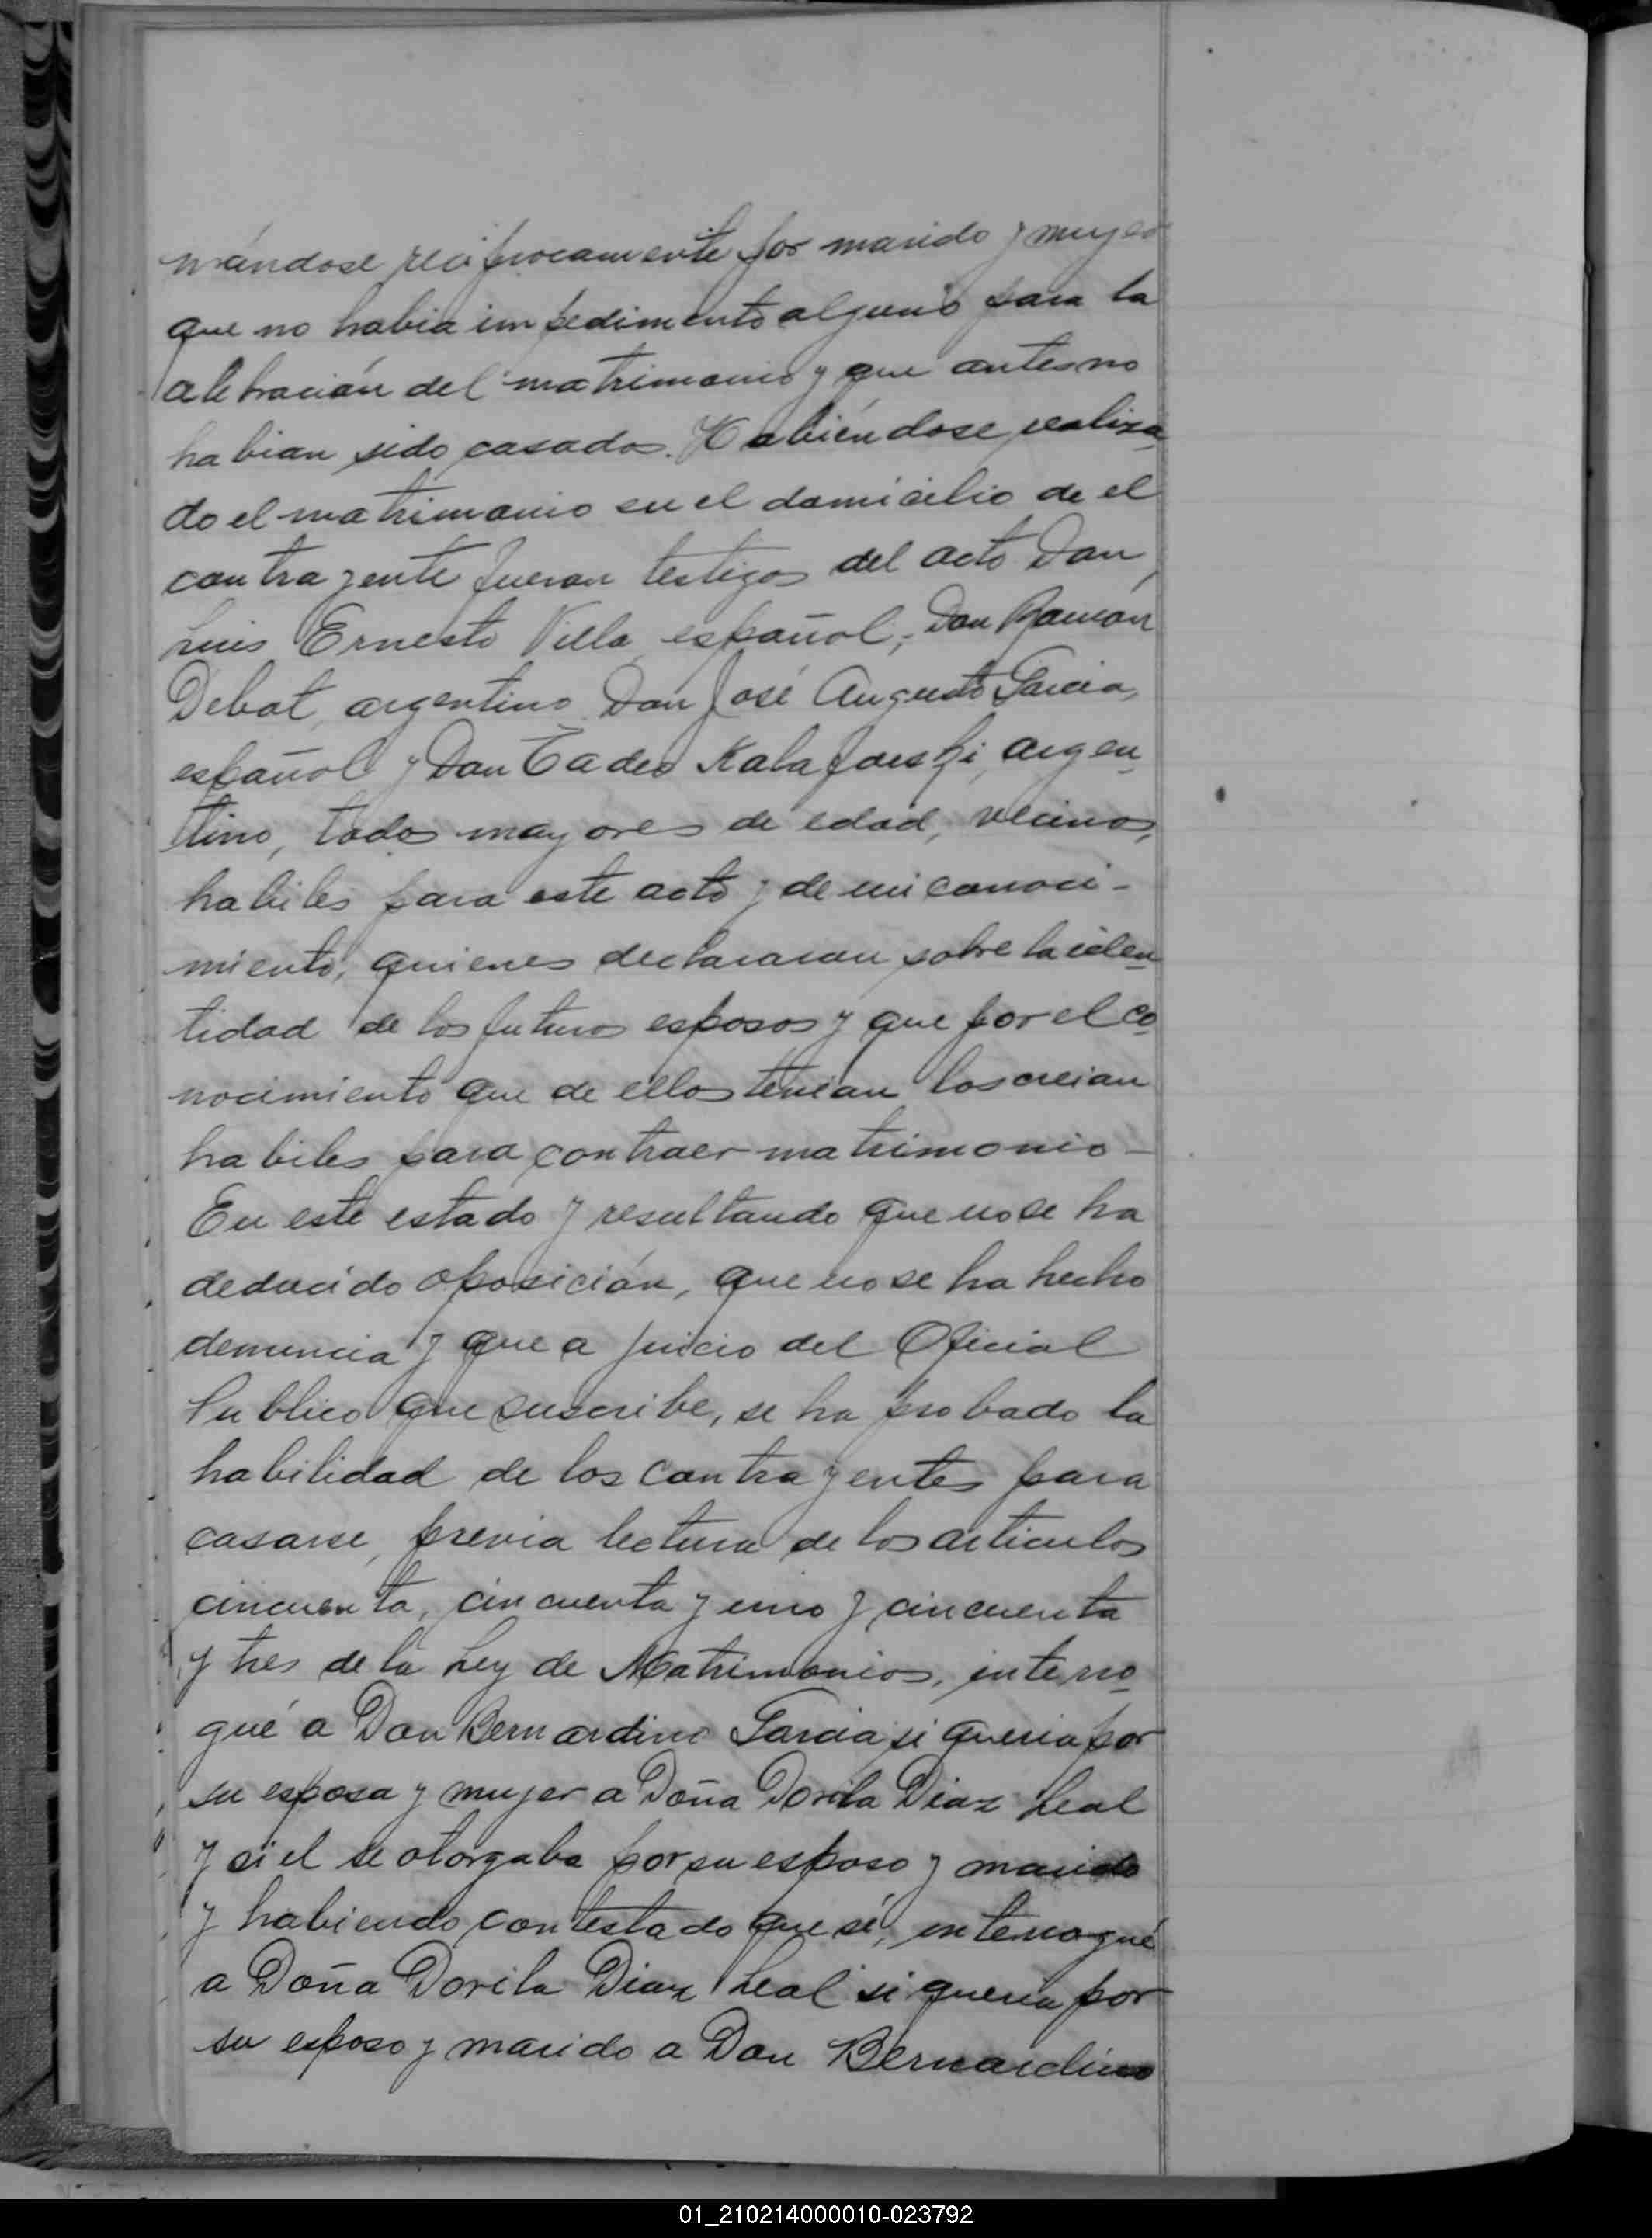 mándose recíprocamente por marido y mujer
que no habia impedimento alguno para la
celebración del matrimonio y que antes no
habian sido casados. Habiéndose realiza
do el matrimonio en el domicilio de el
contrayente fueron testigos del acto Don
Luis Ernesto Villa español, Don Ramón
Debat, argentino Don José Augusto Garcia,
español y Don Tadeo argen
tino, todos mayores de edad, vecinos,
habiles para este acto y de mi conoci-
miento, quienes declararon sobre la iden
tidad de los futuros esposos y que por el co
nocimiento que de ellos tenian los creian
habiles para contraer matrimonio -
En este estado y resultando que no se ha
deducido oposición, que no se ha hecho
denuncia y que a juicio del Oficial
Publico que suscribe, se ha probado la
habilidad de los contrayentes para
casarse, previa lectura de los articulos
cincuenta, cincuenta y uno y cincuenta
y tres de la Ley de Matrimonios, interro
gué a Don Bernardino Garcia si queria por
su esposa y mujer a Doña Dorila Diaz Leal
y si el se otorgaba por su esposo y marido
y habiendo contestado que sí, interrogué
a Doña Dorila Diaz Leal si queria por
su esposo y marido a Don Bernardino
01_210214000010-023792